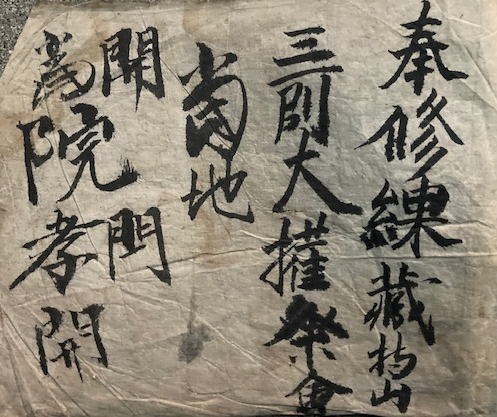 奉修練藏拘山
三則大權祭會
當地
開門
為院孝開